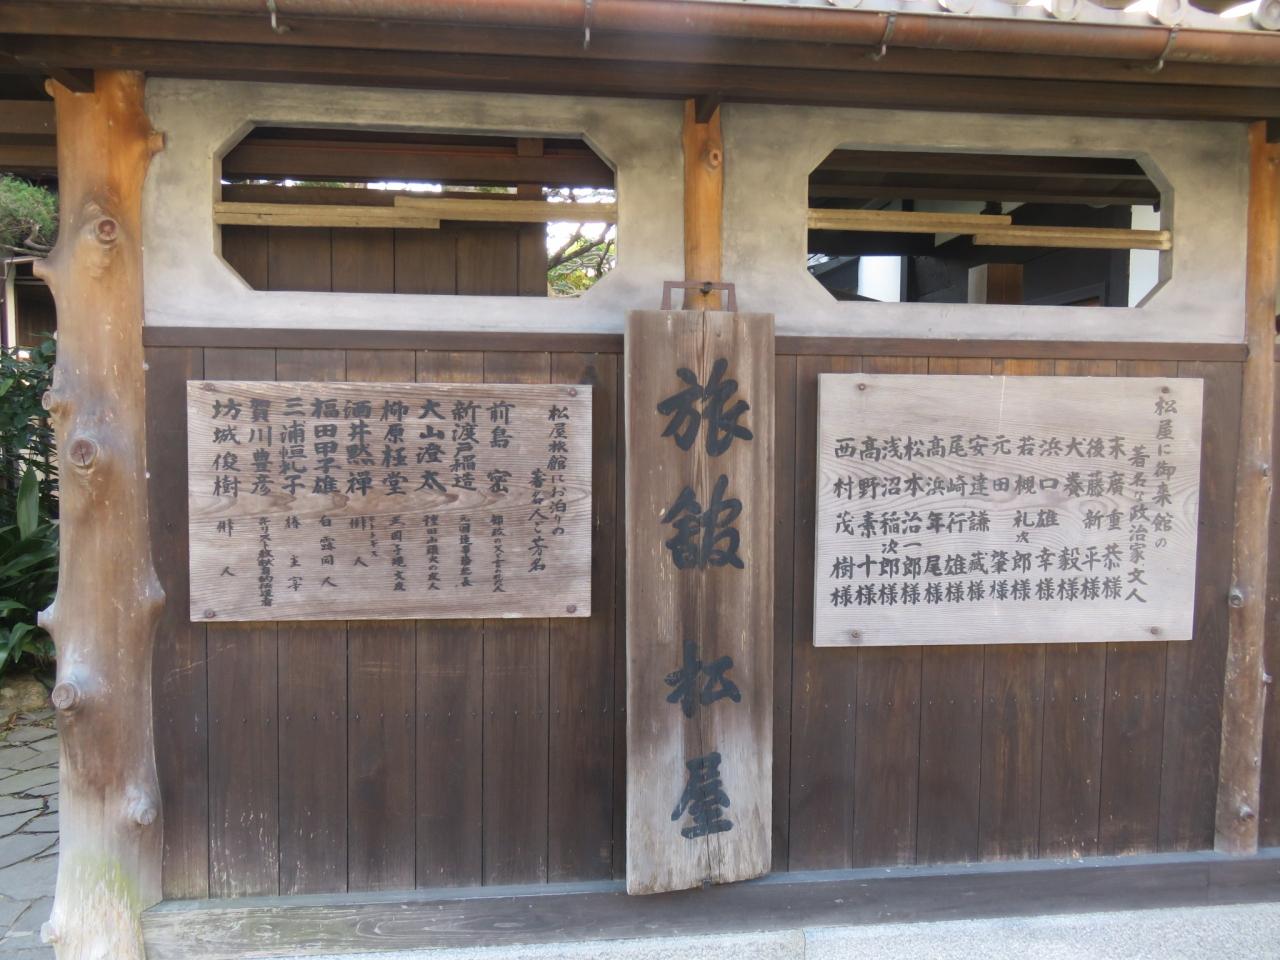 松屋に御来館の
著名な政治家文人
末廣重恭様
後藤新平様
犬養毅様
浜口雄幸様
若槻礼次郎様
元田肇様
安達謙蔵様
尾崎行雄様
高浜年尾様
松本治一郎様
浅沼稲次郎様
高野素十様
西村茂樹様
旅館松屋
松屋旅館にお泊りの
著名人ご芳名
前島密 郵政の父と言われた人
新渡戸稲造 元国連事務次長
大山澄太 種山頭火の友人
柳原極堂 正岡子規文友
酒井黙禅 ホトトギス俳人
福田甲子雄 白露同人
三浦恒礼子 椿主宰
賀川豊彦 キリスト教献身的伝道者
坊城俊樹 俳人